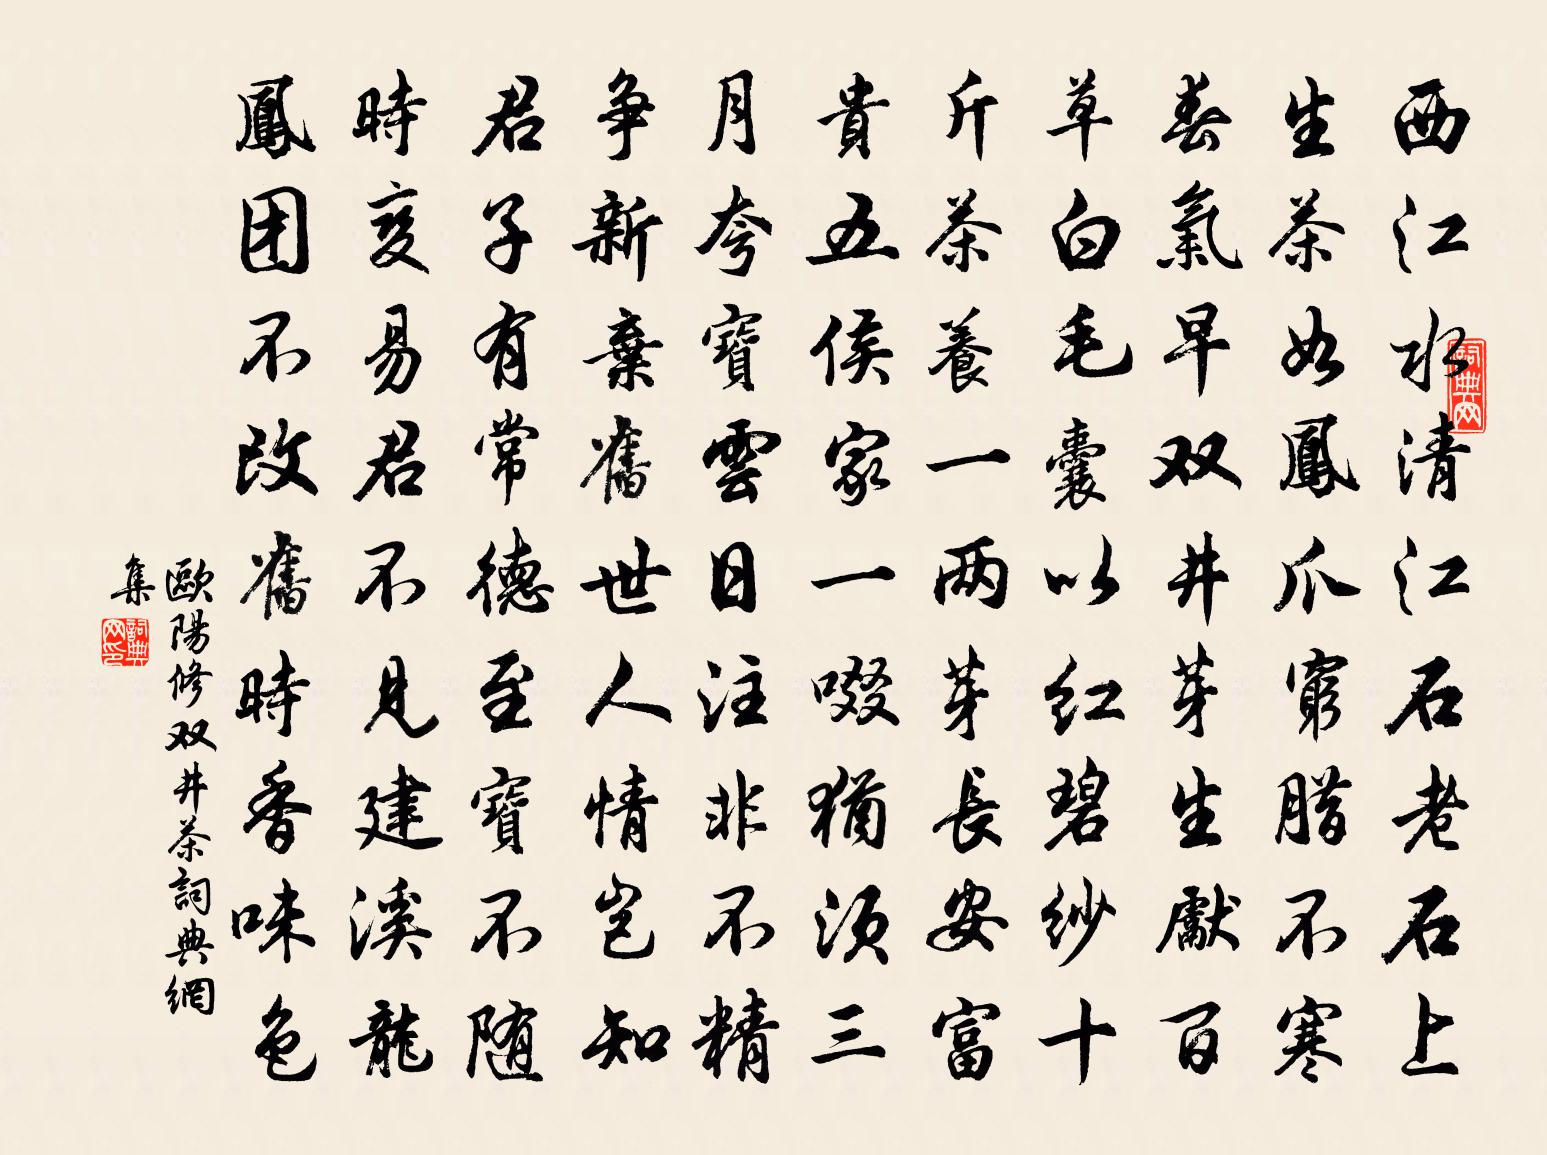 西江水清江石老石上
生茶如鳳爪窮腊不寒
春氣早双井芽生獻百
草白毛囊以红碧纱十
斤茶養一两芽長安富
貴五侯家一啜猶须三
月夸寶雲日注非不精
争新棄舊世人情岂知
君子有常德至寶不随
時变易君不見建溪龍
鳳团不改舊時香味色
歐陽修双井茶詞典網
集
詞典网
詞典网印